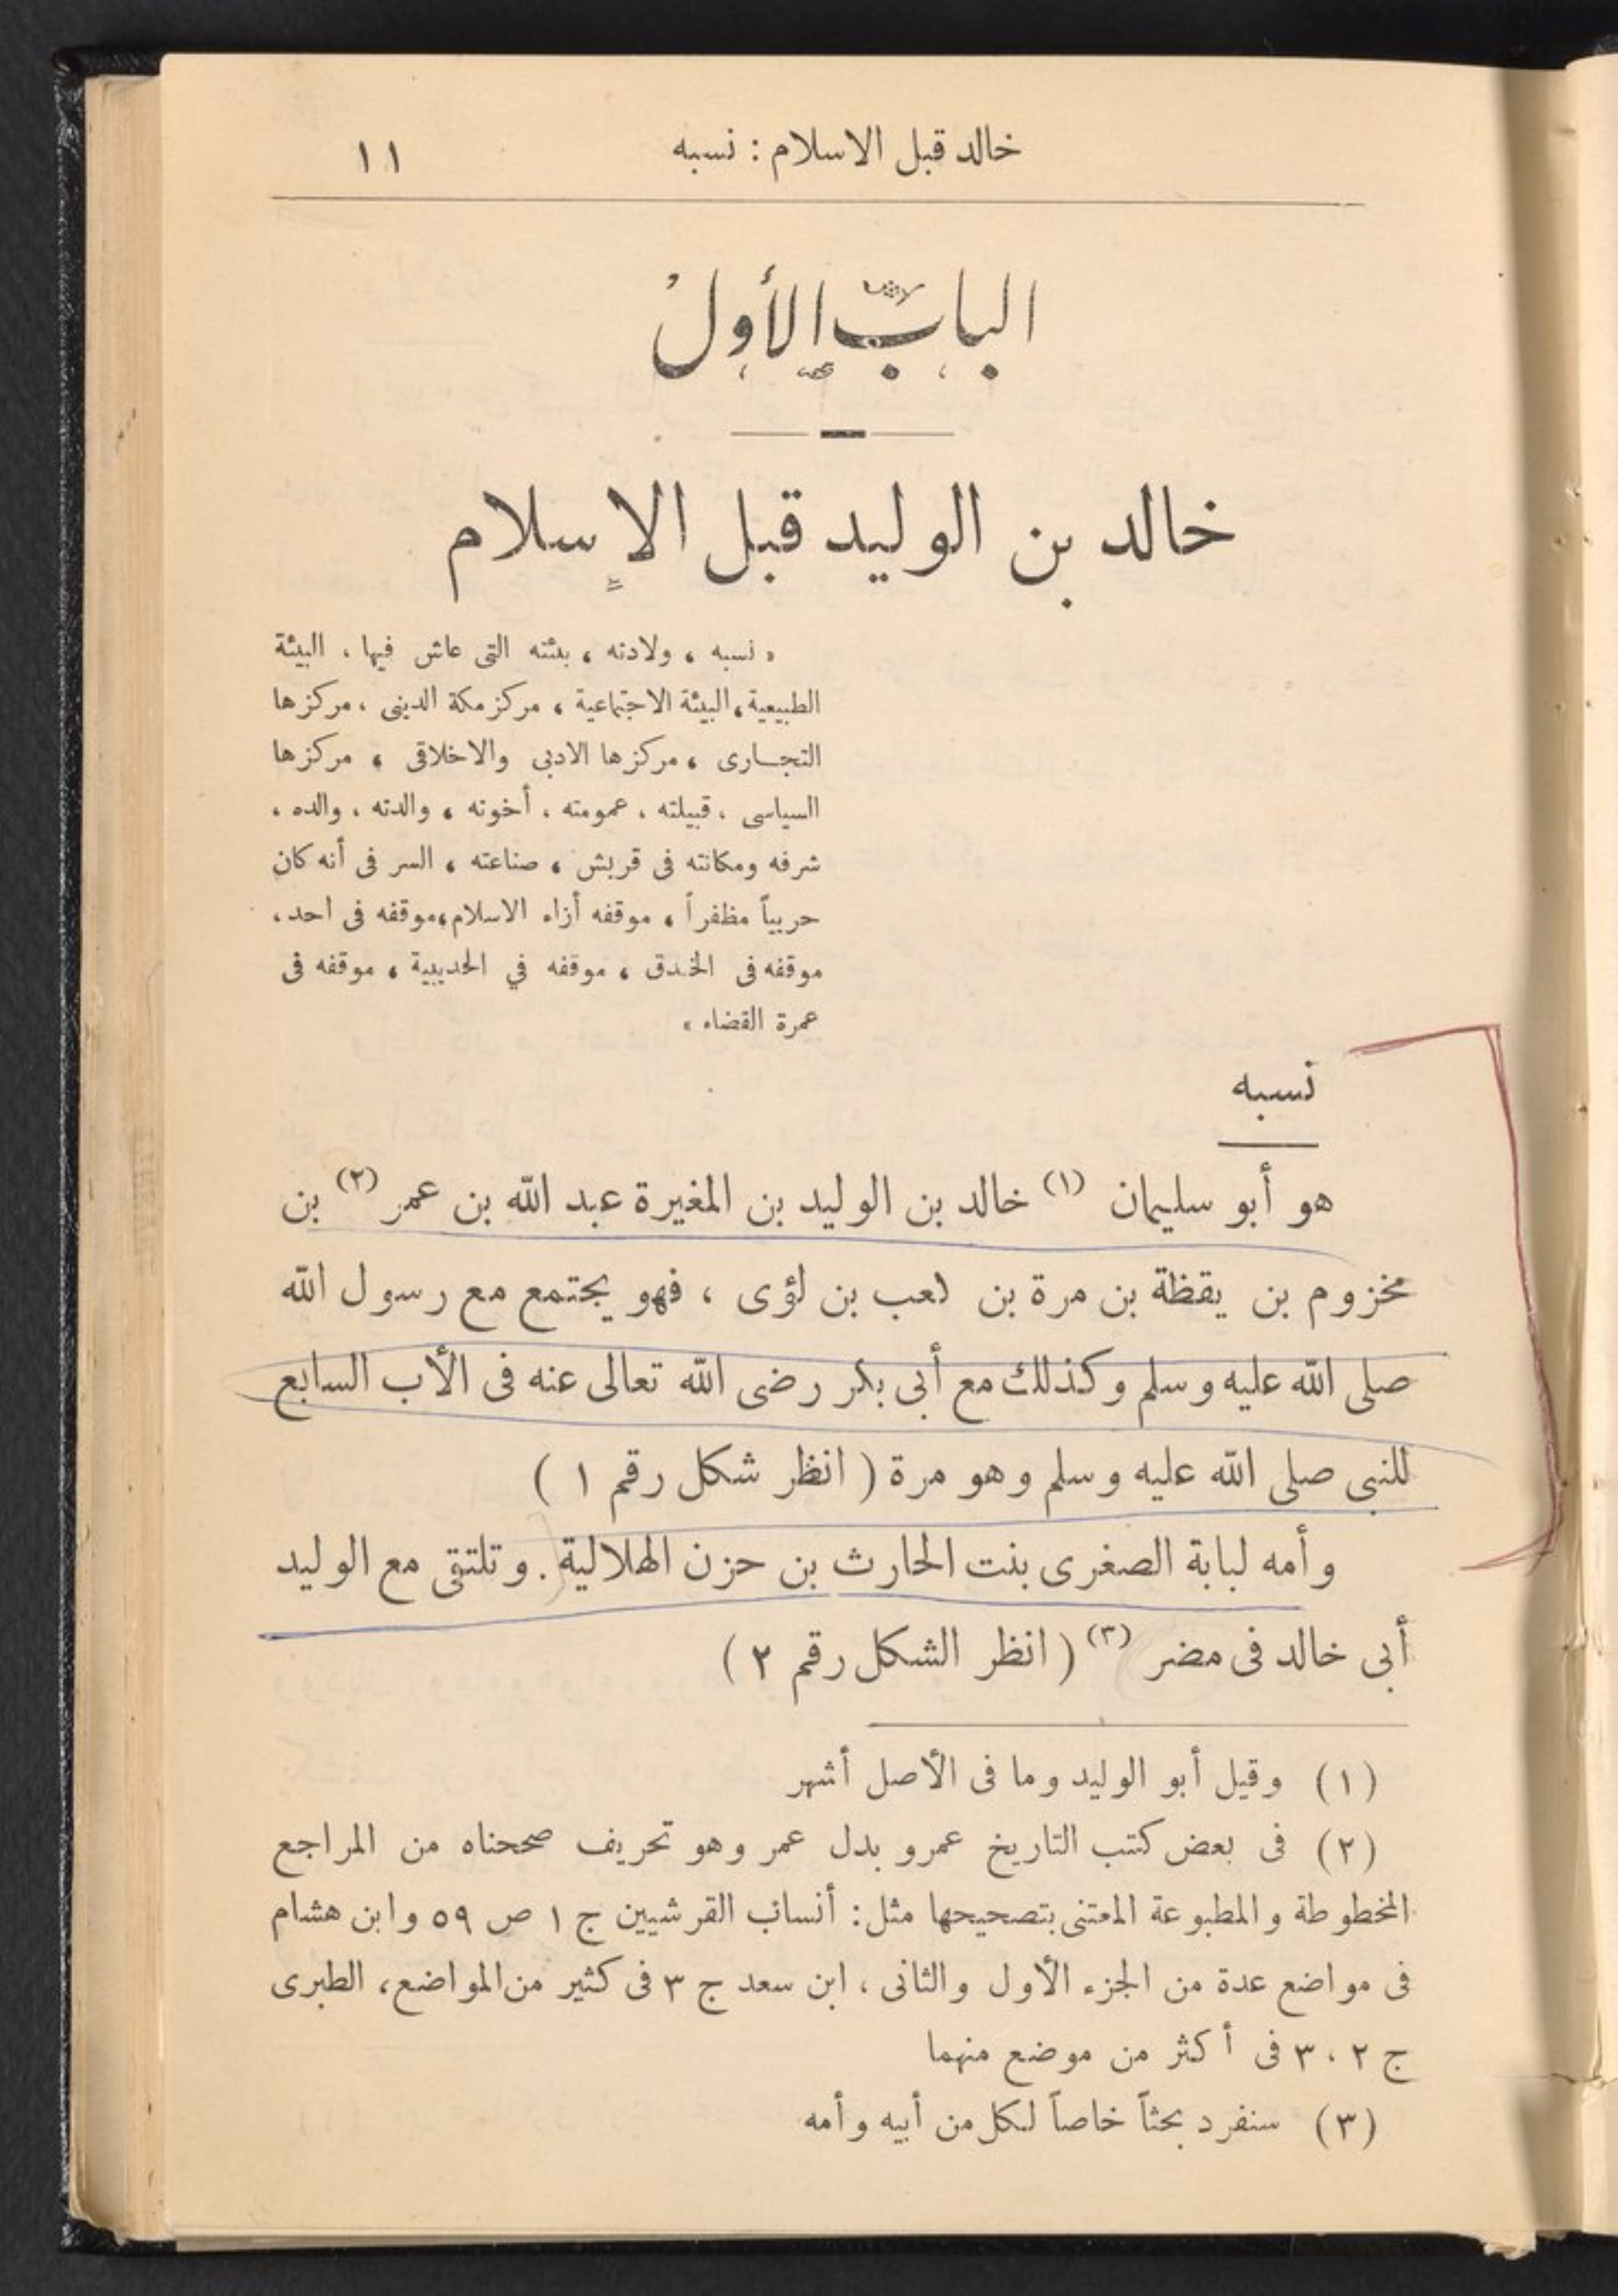 خالد قبل الاسلام : نسبه ١١
الباب الأول
خالد بن الوليد قبل الإسلام
« نسبه ، ولادته ، بيئته التى عاش فيها ، البيئة
الطبيعية ، البيئة الاجتماعية ، مركز مكة الدينى ، مركزها
التجارى ، مركزها الادبى والاخلاقى ، مركزها
السياسى ، قبيلته ، عمومته ، أخوته ، والدته ، والده ،
شرفه ومكانته فى قريش ، صناعته ، السر فى أنه كان
حربياً مظفراً ، موقفه أزاء الاسلام ، موقفه فى احد ،
موقفه فى الخندق ، موقفه في الحديبية ، موقفه فى
عمرة القضاء »
نسبه
هو أبو سليمان (١) خالد بن الوليد بن المغيرة عبد الله بن عمر (٢) بن
مخزوم بن يقظة بن مرة بن كعب بن لؤى ، فهو يجتمع مع رسول الله
صلى الله عليه وسلم وكذلك مع أبى بكر رضى الله تعالى عنه فى الأب السابع
للنبى صلى الله عليه وسلم وهو مرة ( انظر شكل رقم ١ )
وأمه لبابة الصغرى بنت الحارث بن حزن الهلالية . وتلتقى مع الوليد
أبى خالد فى مضر (٣) ( انظر الشكل رقم ٢ )
(١) وقيل أبو الوليد وما فى الأصل أشهر
(٢) فى بعض كتب التاريخ عمرو بدل عمر وهو تحريف صححناه من المراجع
المخطوطة والمطبوعة المعتنى بتصحيحها مثل : أنساب القرشيين ج ١ ص ٥٩ وابن هشام
فى مواضع عدة من الجزء الأول والثانى ، ابن سعد ج ٣ فى كثير من المواضع ، الطبرى
ج ٢ ، ٣ فى أكثر من موضع منهما
(٣) سنفرد بحثاً خاصاً لكل من أبيه وأمه